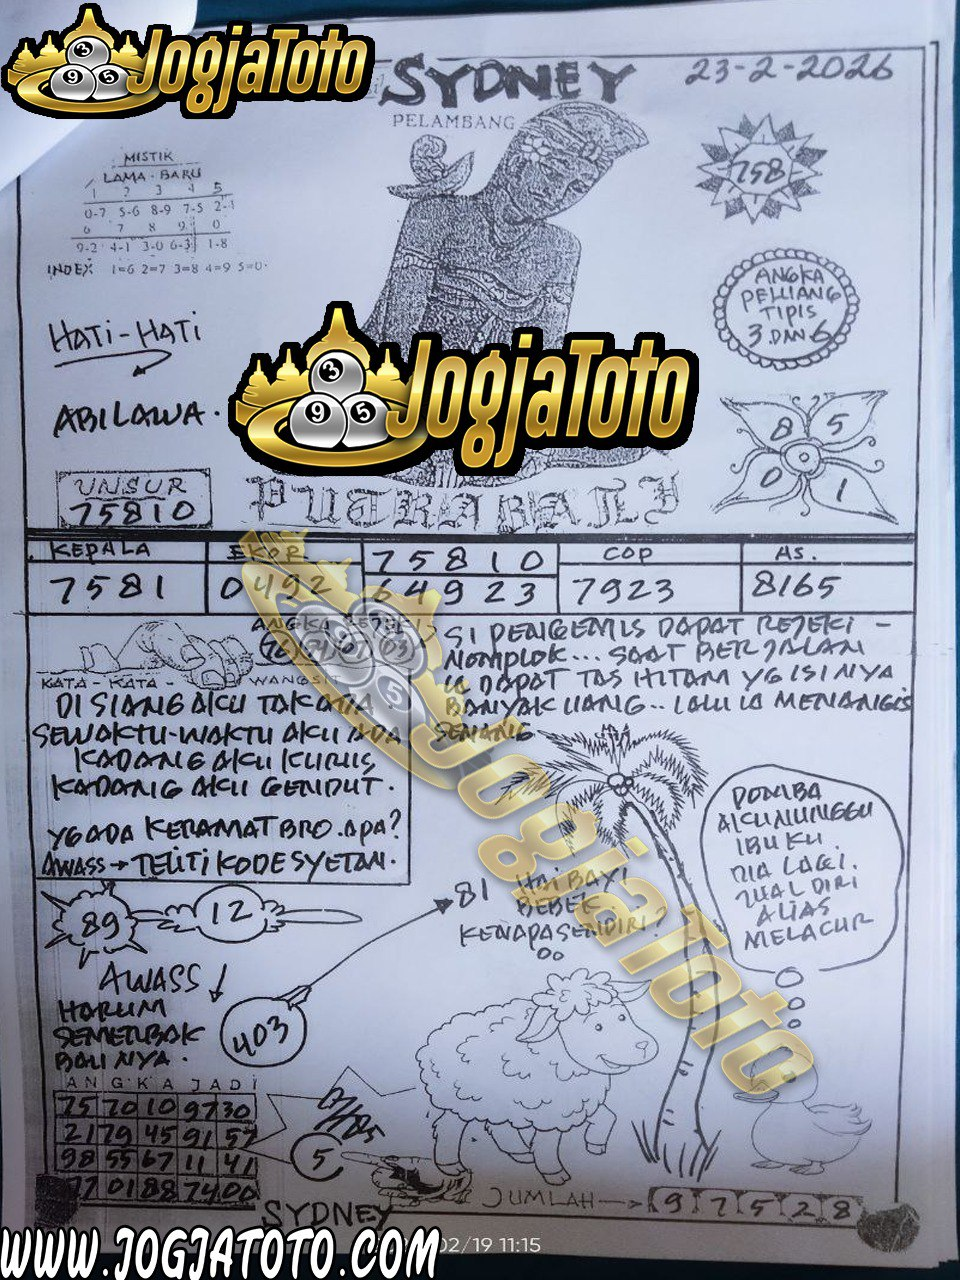 JogjaToto
SYDNEY
23-2-2026
PELAMBANG
MISTIK
LAMA - BARU
1 2 3 4 5
0-7 5-6 8-9 7-5 2-
6 7 8 9 0
9-2 4-1 3-0 6-3 1-8
INDEX 1=6 2=7 3=8 4=9 5=0
758
ANGKA
PELUANG
TIPIS
3 DAN 6
HATI-HATI
ABILAWA.
JogjaToto
8 5
0 1
UNSUR
75810
PUTRA BALI
KEPALA
EKOR
75810
COP
AS.
7581
0492
64923
7923
8165
ANGKA
KATA - KATA - WANGSIT
DI SIANG AKU TAK ADA
SEWAKTU-WAKTU AKU ADA
KADANG AKU KURUS
KADANG AKU GENDUT.
YG ADA KERAMAT BRO. APA?
AWASS → TELITI KODE SYETAN.
SI PENGEMIS DAPAT REJEKI -
NOMPLOK... SAAT BERJALAN
IA DAPAT TAS HITAM YG ISINYA
BANYAK UANG.. LALU IA MENANGIS
SENANG
JogjaToto
DOMBA
AKU NUNGGU
IBUKU.
DIA LAGI.
JUAL DIRI
ALIAS
MELACUR
89
12
81 HAI BAYI
BEBEK
KENAPA SENDIRI?
AWASS
HARUM
SEMERBAK
BAUNYA.
403
ANGKA JADI
75 70 10 97 30
21 79 45 91 57
98 55 67 11 41
77 01 88 74 00
5
SYDNEY
JUMLAH → 9 7 5 2 8
02/19 11:15
WWW.JOGJATOTO.COM